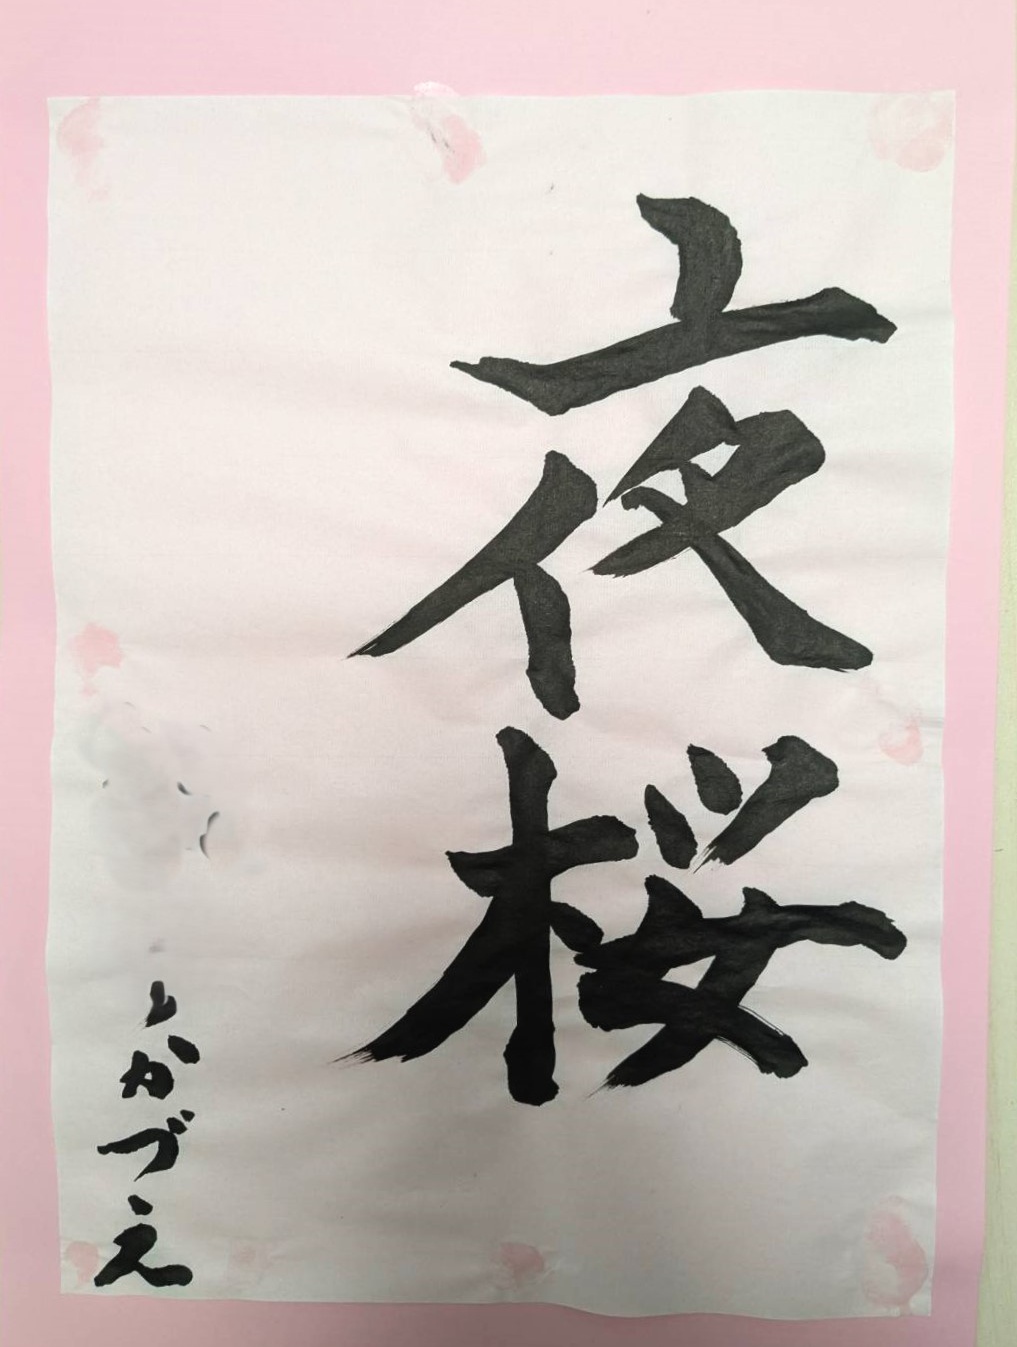 夜桜
かづえ